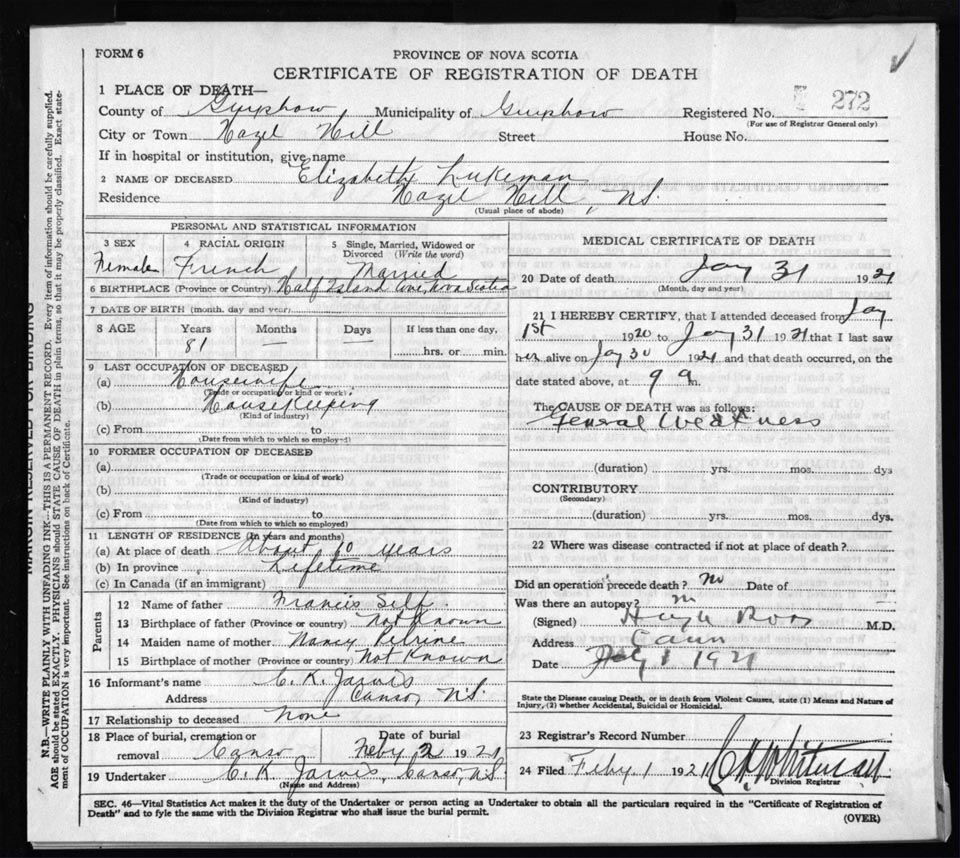 FORM 6
PROVINCE OF NOVA SCOTIA
CERTIFICATE OF REGISTRATION OF DEATH
1 PLACE OF DEATH—
County of Guysboro, Municipality of Guysboro Registered No. 272
(For use of Registrar General only)
City or Town Hazel Hill Street House No.
If in hospital or institution, give name
2 NAME OF DECEASED Elizabeth Lukeman
Residence Hazel Hill, N.S.
(Usual place of abode)
PERSONAL AND STATISTICAL INFORMATION
3 SEX 4 RACIAL ORIGIN 5 Single, Married, Widowed or Divorced (Write the word)
Female French Married
6 BIRTHPLACE (Province or Country) Half Island Cove, Nova Scotia
7 DATE OF BIRTH (month, day and year)
8 AGE Years Months Days If less than one day,
81 — — hrs. or min.
9 LAST OCCUPATION OF DECEASED
(a) Housewife
(Trade or occupation or kind of work)
(b) Housekeeping
(Kind of industry)
(c) From to
(Date from which to which so employed)
10 FORMER OCCUPATION OF DECEASED
(a)
(Trade or occupation or kind of work)
(b)
(Kind of industry)
(c) From to
(Date from which to which so employed)
11 LENGTH OF RESIDENCE (in years and months)
(a) At place of death About 60 years
(b) In province Lifetime
(c) In Canada (if an immigrant)
Parents
12 Name of father Francis Self
13 Birthplace of father (Province or country) Not Known
14 Maiden name of mother Nancy Petrine
15 Birthplace of mother (Province or country) Not Known
16 Informant's name C. K. Jarvis
Address Canso, N.S.
17 Relationship to deceased None
18 Place of burial, cremation or removal Canso Date of burial Feby 2 1921
19 Undertaker C. K. Jarvis, Canso, N.S.
(Name and Address)
MEDICAL CERTIFICATE OF DEATH
20 Date of death Jay 31 1921
(Month, day and year)
21 I HEREBY CERTIFY, that I attended deceased from Jay
1st 1920 to Jay 31 1921 that I last saw
her alive on Jay 30 1921 and that death occurred, on the
date stated above, at 9 a m.
The CAUSE OF DEATH was as follows:
General Weakness
(duration) yrs. mos. dys
CONTRIBUTORY
(Secondary)
(duration) yrs. mos. dys.
22 Where was disease contracted if not at place of death?
Did an operation precede death? no Date of
Was there an autopsy? n
(Signed) Hugh Ross M.D.
Address
Date 1 1921
State the Disease causing Death, or in death from Violent Causes, state (1) Means and Nature of
Injury, (2) whether Accidental, Suicidal or Homicidal.
23 Registrar's Record Number
24 Filed Feby 1 1921 Whitman
Division Registrar
SEC. 46—Vital Statistics Act makes it the duty of the Undertaker or person acting as Undertaker to obtain all the particulars required in the "Certificate of Registration of
Death" and to fyle the same with the Division Registrar who shall issue the burial permit.
(OVER)
MARGIN RESERVED FOR BINDING
N.B.—WRITE PLAINLY WITH UNFADING INK—THIS IS A PERMANENT RECORD. Every item of information should be carefully supplied.
AGE should be stated EXACTLY. PHYSICIANS should STATE CAUSE OF DEATH in plain terms, so that it may be properly classified. Exact state-
ment of OCCUPATION is very important. See instructions on back of Certificate.